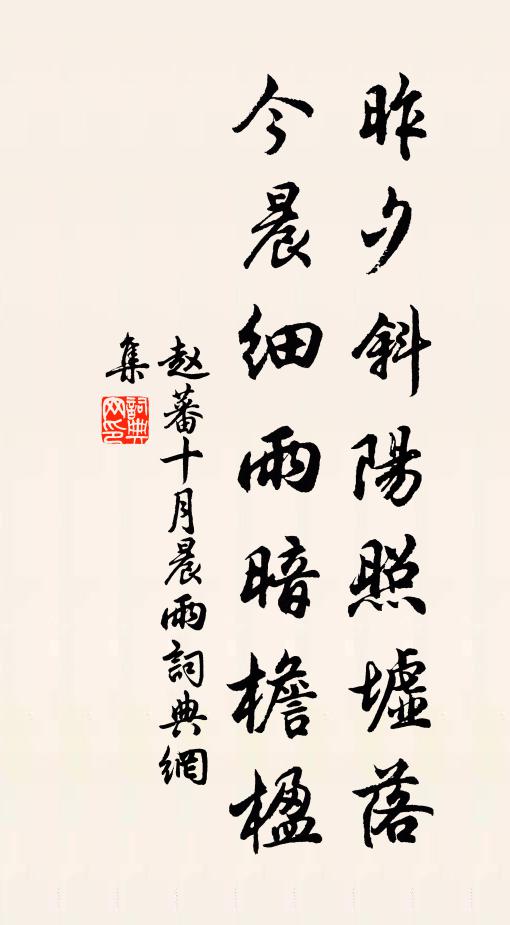 昨夕斜陽照墟落
今晨細雨暗檐楹
赵蕃十月晨雨詞典網
集
詞典网印